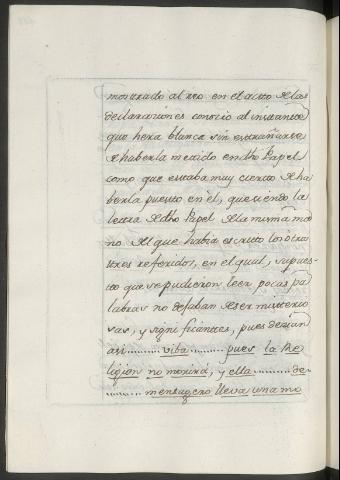 mostrado al reo en el acto de las
declaraciones conocio al instante
que hera blanca sin estrañarse
de haberla metido en dho Papel
como que estaba muy cierto de ha
berla puesto en èl, que siendo la
letra de dho Papel de la misma ma
no del que habia escrito los otros
tres referidos, en el qual, supues-
to que se pudieron leer pocas pa
labras no dejaban de ser misterio
sas, y significantes, pues dezian
asi ........... viba ......... pues la Re
ligion no morirá, y ella ......... de
....... mensagero lleva una mo